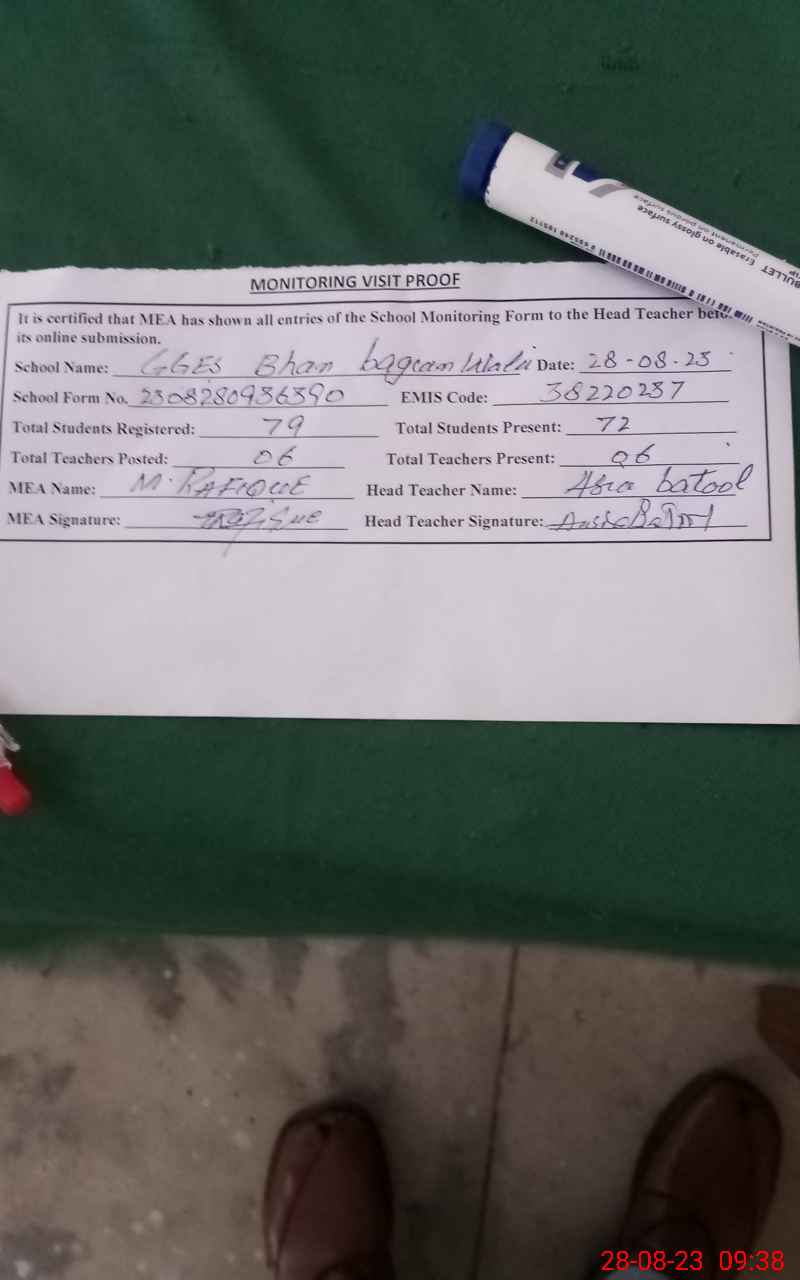 BULLET Erasable on glossy surface
Permanent on porous surface
MONITORING VISIT PROOF
It is certified that MEA has shown all entries of the School Monitoring Form to the Head Teacher
its online submission.
School Name: GGES Bhan bagcan Wala Date: 28-08-23
School Form No. 2308280936390 EMIS Code: 38220237
Total Students Registered: 79 Total Students Present: 72
Total Teachers Posted: 06 Total Teachers Present: 06
MEA Name: M. RAFIQUE Head Teacher Name: Asia batool
MEA Signature: Head Teacher Signature:
28-08-23 09:38